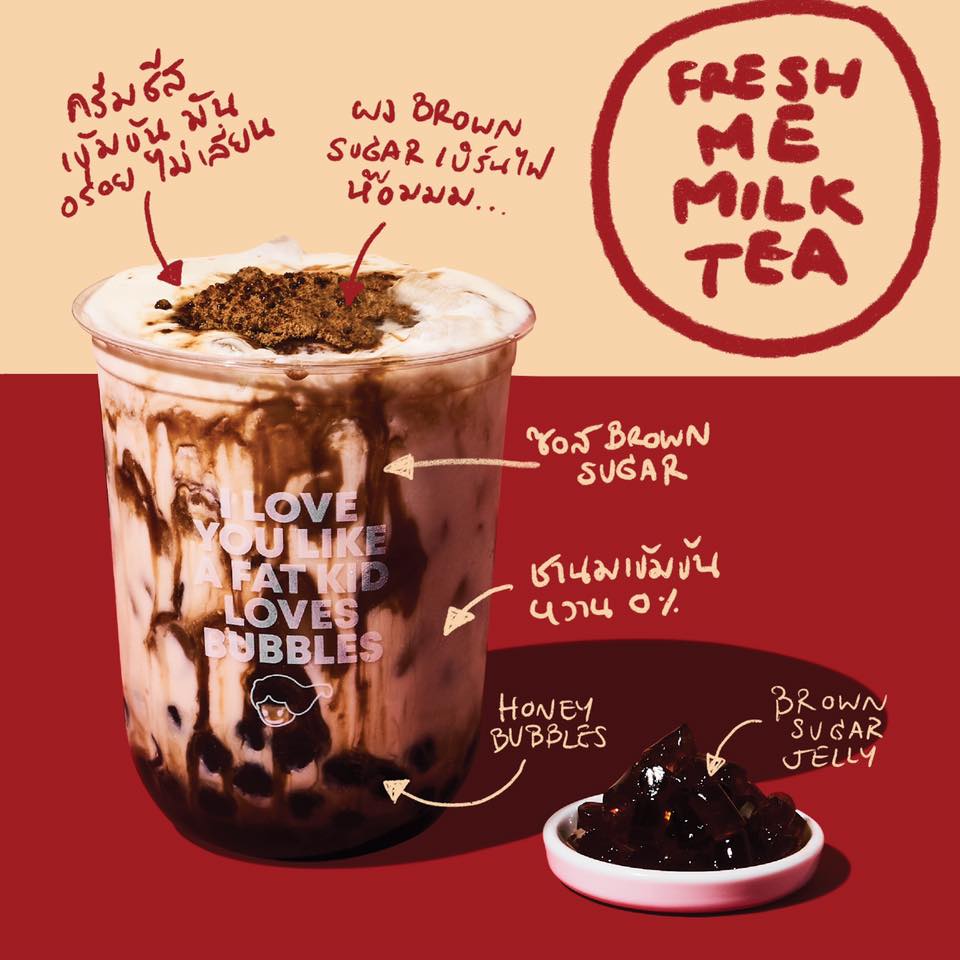 ครีมชีส
เข้มข้น มัน
อร่อย ไม่เลี่ยน
ผง BROWN
SUGAR เบิร์นไฟ
ห๊อมมม...
FRESH
ME
MILK
TEA
ซอส BROWN
SUGAR
I LOVE
YOU LIKE
A FAT KID
LOVES
BUBBLES
ชานมเข้มข้น
หวาน 0%
HONEY
BUBBLES
BROWN
SUGAR
JELLY